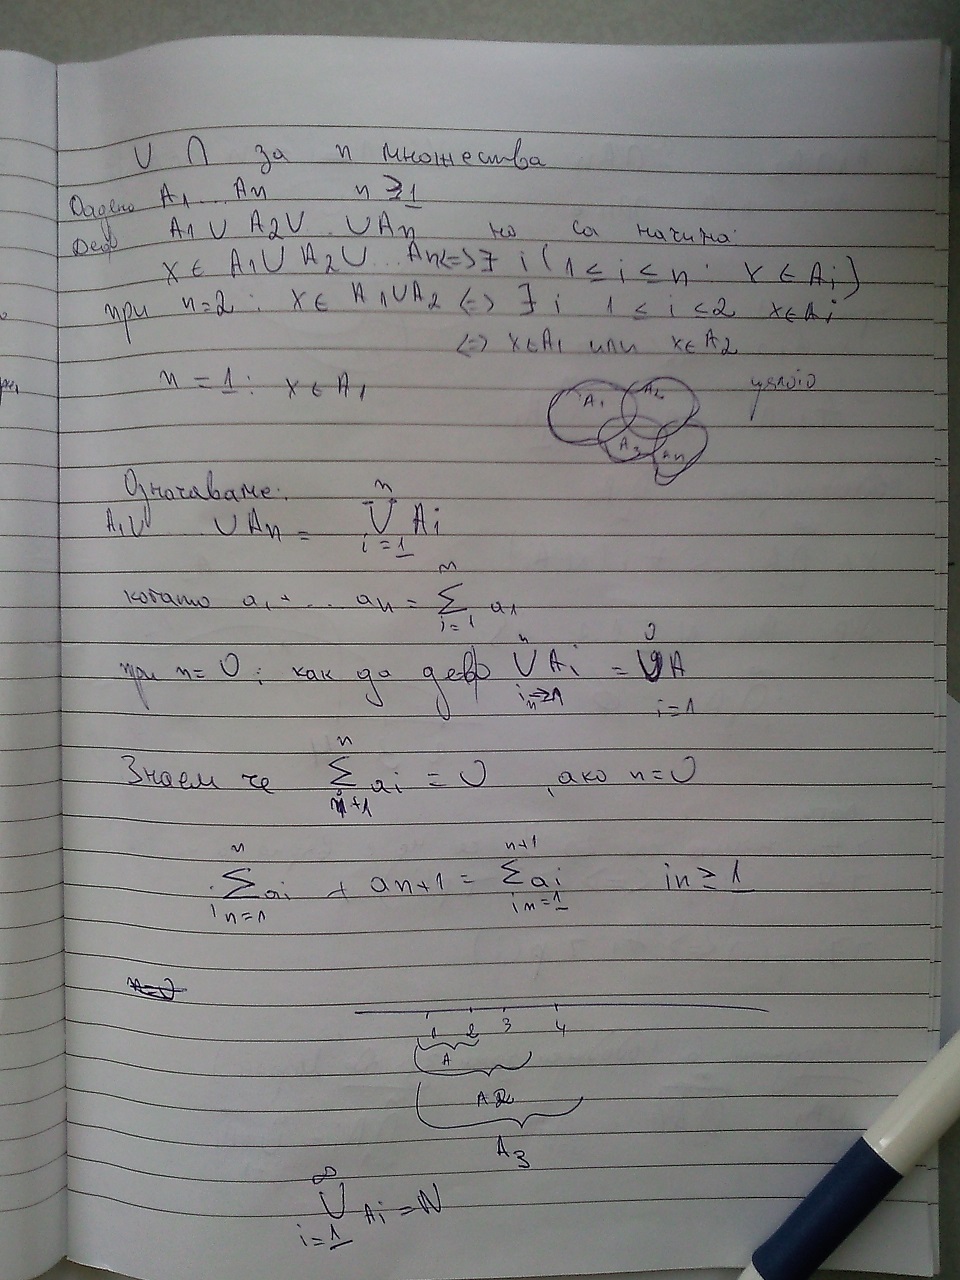 ∪ ∩ за n множества
Дадено A1...An n ≥ 1
Деф A1 ∪ A2 ∪ .. ∪ An по са начина:
x ∈ A1 ∪ A2 ∪ ... An <=> ∃ i (1 ≤ i ≤ n : x ∈ Ai)
при n=2 : x ∈ A1 ∪ A2 <=> ∃ i 1 ≤ i ≤ 2 x ∈ Ai
<=> x ∈ A1 или x ∈ A2
n = 1 : x ∈ A1
A1 A2 цялото
A3 An
Означаваме:
A1 ∪ ∪ An = n ∪ i=1 Ai
когато a1 + ... an = n ∑ i=1 a1
при n = 0 : как да деф n ∪ Ai = 0 ∪ i=1 A
Знаем че n ∑ ai = 0 , ако n=0
n ∑ in=1 ai + an+1 = n+1 ∑ in=1 ai in ≥ 1
1 2 3 4
A
A2
A3
∞ ∪ i=1 Ai = N